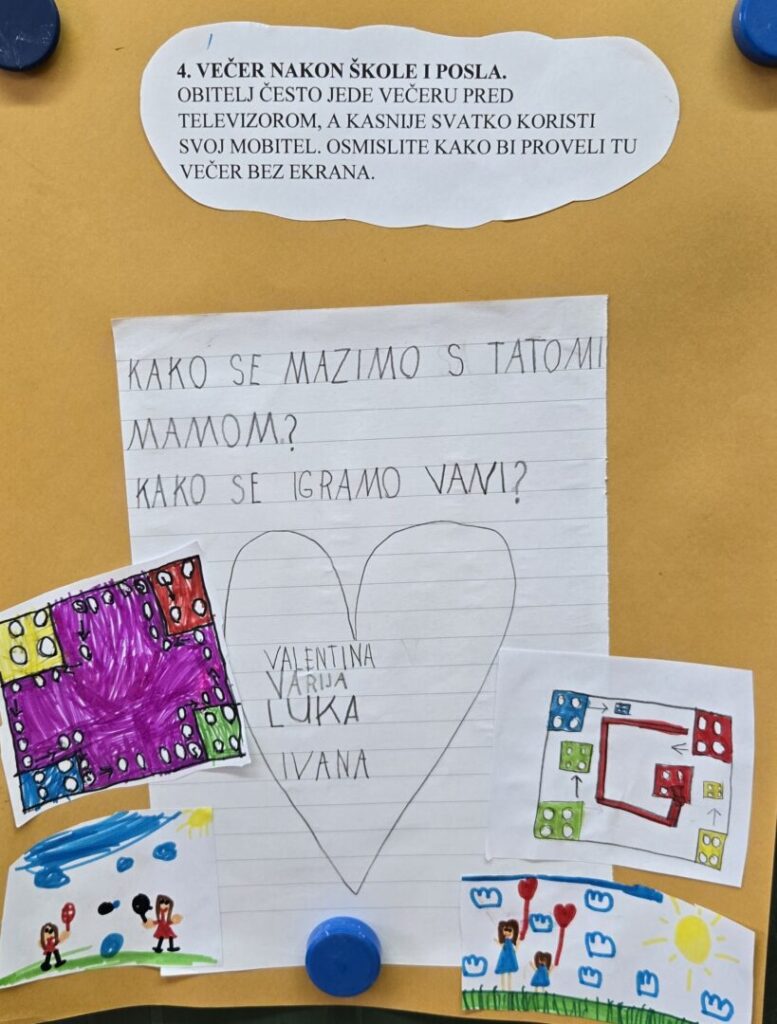 4. VEČER NAKON ŠKOLE I POSLA.
OBITELJ ČESTO JEDE VEČERU PRED
TELEVIZOROM, A KASNIJE SVATKO KORISTI
SVOJ MOBITEL. OSMISLITE KAKO BI PROVELI TU
VEČER BEZ EKRANA.
KAKO SE MAZIMO S TATOMI
MAMOM?
KAKO SE IGRAMO VANI?
VALENTINA
VARIJA
LUKA
IVANA